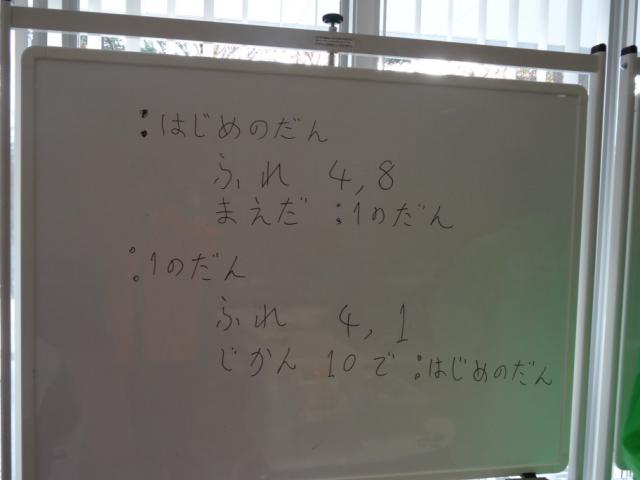 :はじめのだん
ふれ 4,8
まえだ :1のだん
:1のだん
ふれ 4,1
じかん 10で :はじめのだん